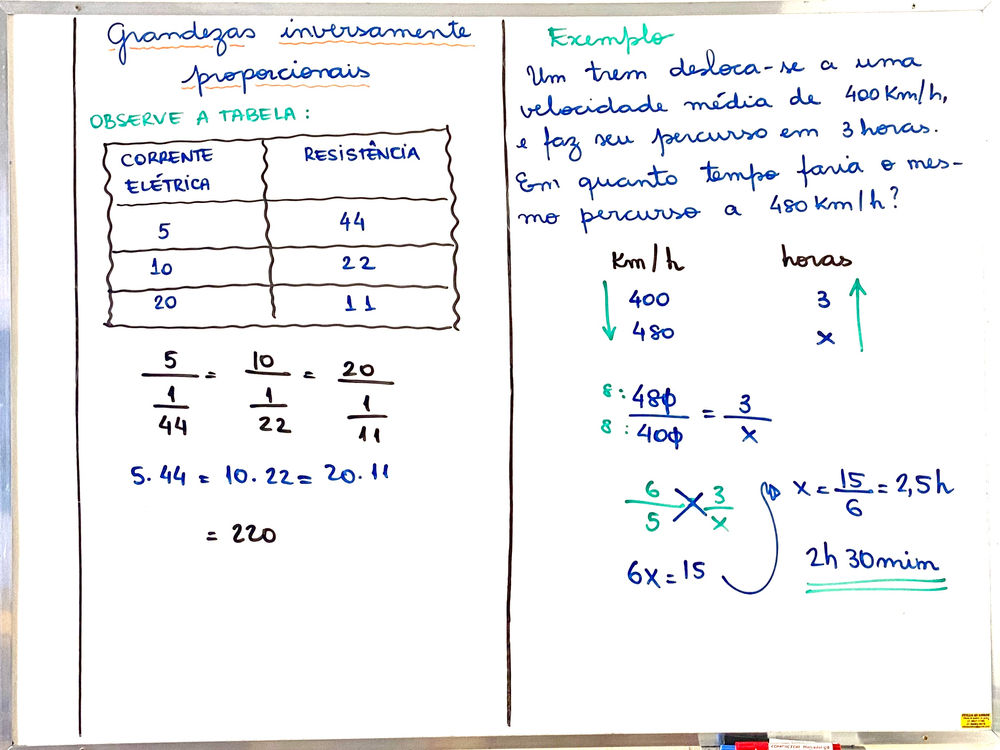 Grandezas inversamente
proporcionais
OBSERVE A TABELA:
CORRENTE ELÉTRICA | RESISTÊNCIA
5 | 44
10 | 22
20 | 11
5/(1/44) = 10/(1/22) = 20/(1/11)
5.44 = 10.22 = 20.11
= 220
Exemplo
Um trem desloca-se a uma
velocidade média de 400 Km/h,
e faz seu percurso em 3 horas.
Em quanto tempo faria o mes-
mo percurso a 480 Km/h?
Km/h horas
↓ 400 3 ↑
480 x
8: 480/8: 400 = 3/x
6/5 3/x
6x = 15
x = 15/6 = 2,5h
2h 30mim